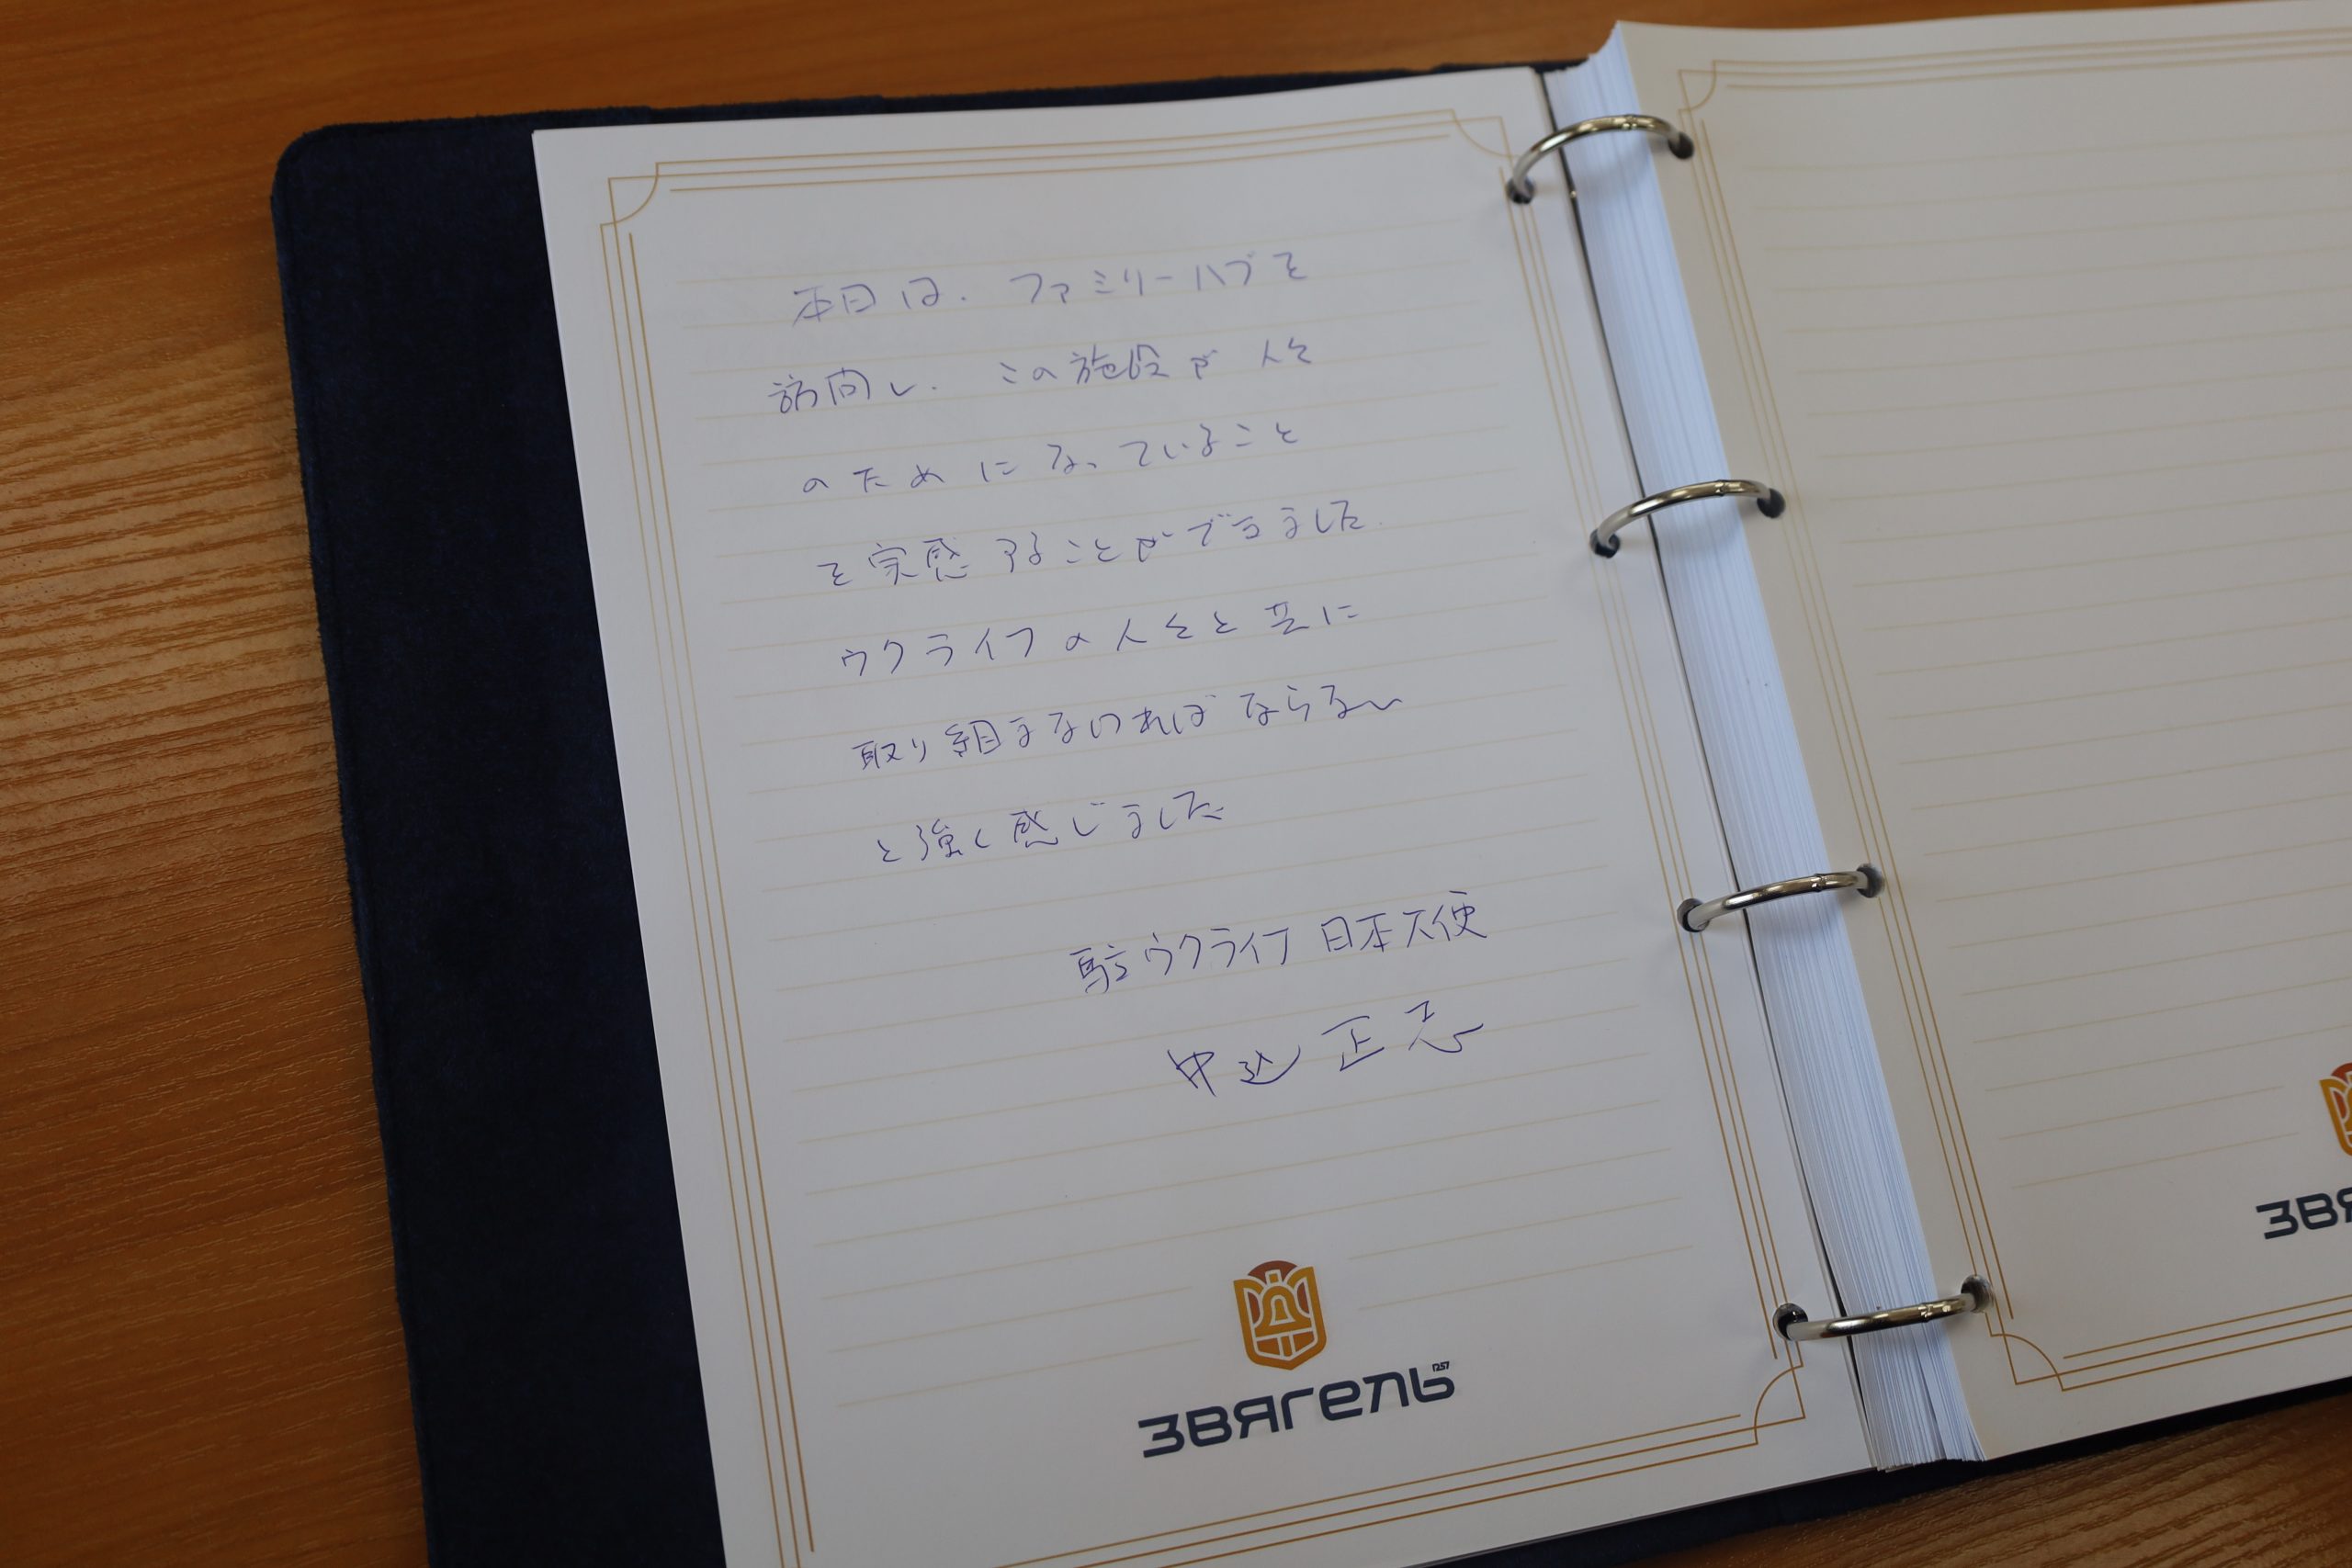 本日は、ファミリーハブを
訪問し、この施設が人々
のためになっていること
を実感することができました。
ウクライナの人々と共に
取り組まなければならない
と強く感じました
駐ウクライナ日本大使
中込正志
1257
ЗВЯГЕЛЬ
ЗВЯ